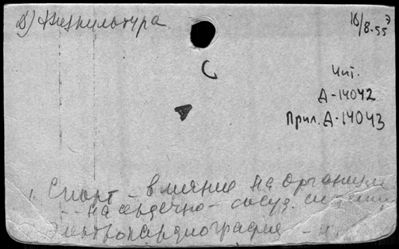 в) Физкультура
16/8-55
Чит.
Д-14042
Прил. Д-14043
1. Спорт - влияние на организм
- - на сердечно - сосуд. систему
Электрокардиография -